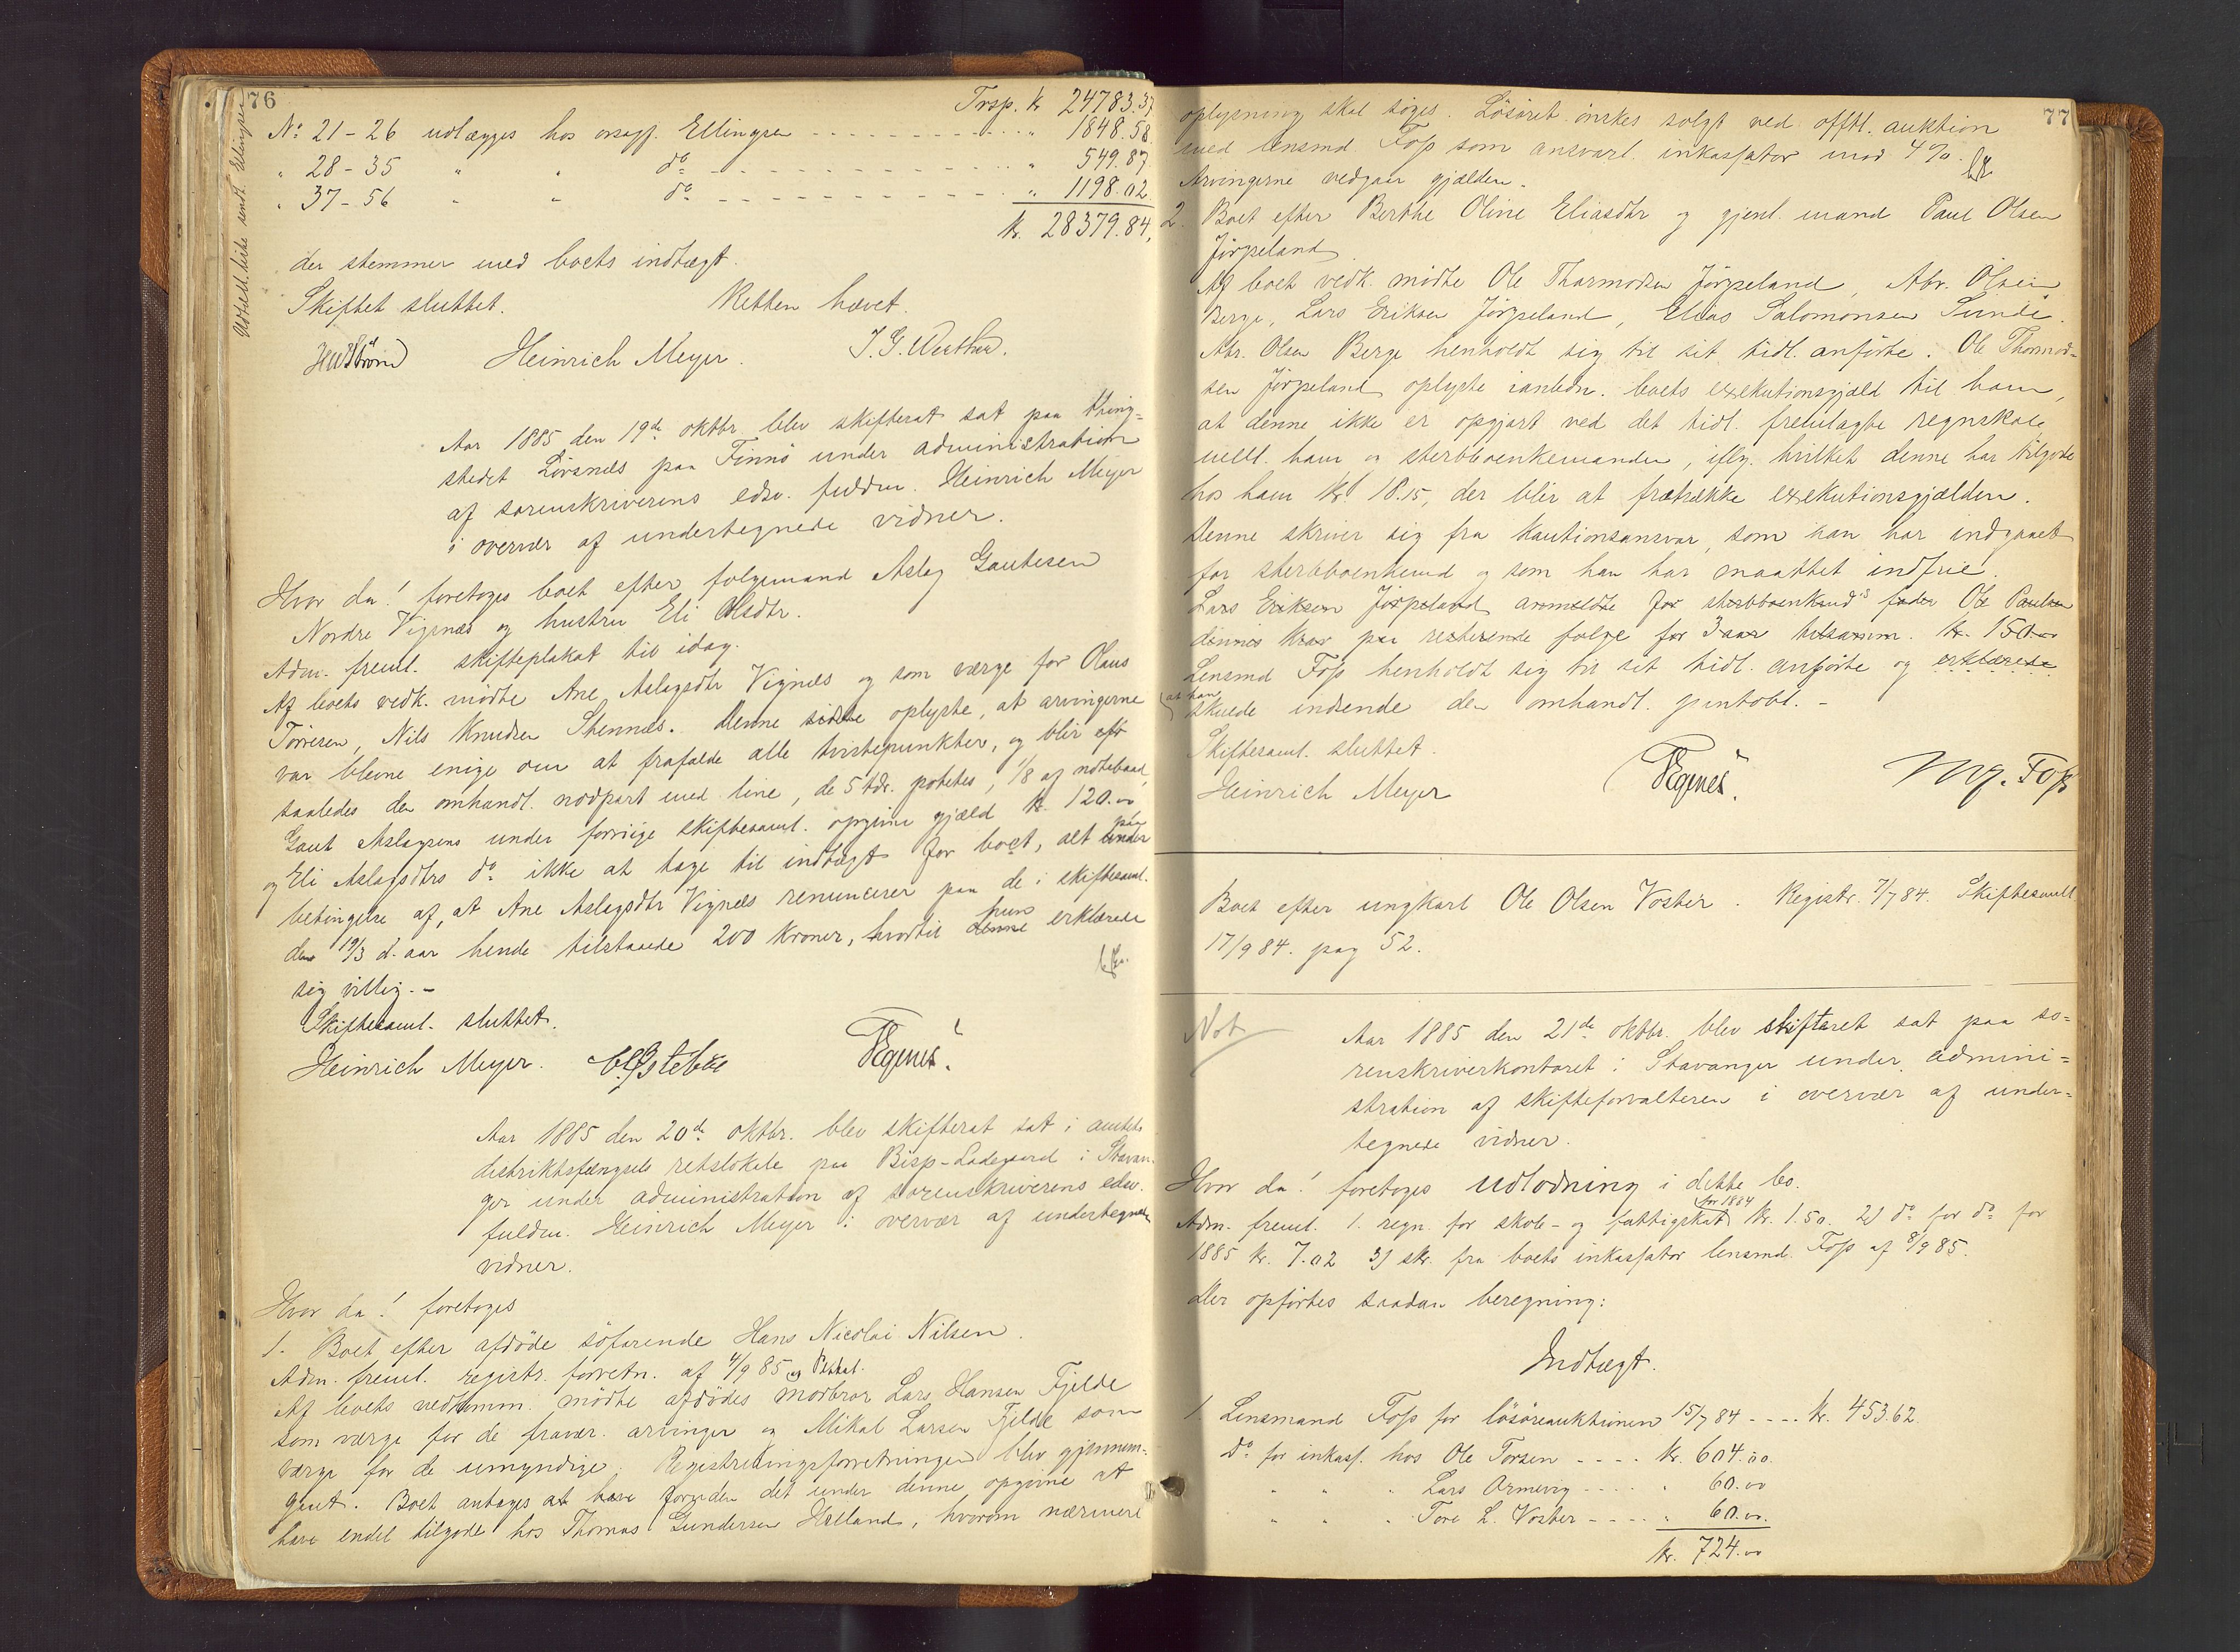 76
Trsp. kr 24783.37
No 21-26 udlægges hos orsagf. Ellingsen - - - " 1848.58
" 28-35 " " do - - - " 549.87
" 37-56 " " do - - - " 1198.02
kr. 28379.84,
der stemmer med boets indtægt.
Skiftet sluttet. Retten hævet.
Heinrich Meyer.
Aar 1885 den 19de oktbr. blev skifteret sat paa thing-
stedet Lørsnæs paa Finnø under administration
af sorenskriverens edsv. fuldm. Heinrich Meyer
i overvær af undertegnede vidner.
Hvor da! foretoges boet efter følgemand Aslag Gautesen
Nordre Vignæs og hustru Eli Olsdtr.
Adm. freml. skifteplakat til idag.
Af boets vedk. mødte Ane Aslagsdtr Vignæs og som værge for Olaus
Tørresen, Nils Knudsen Stennæs. Denne sidste oplyste, at arvingerne
var blevne enige om at frafalde alle tvistepunkter, og blir
saaledes den omhandl. nodpart med line, de 5 tdr. potetes, 1/8 af notebaad,
Gaut Aslagsens under forrige skiftesaml. opgivne gjæld kr. 120.00
og Eli Aslagsdtrs do ikke at tage til indtægt for boet, alt under paa
betingelse af, at Ane Aslagsdtr Vignæs renuncerer paa de i skiftesaml.
den 19/3 d. aar hende tilstaaede 200 kroner, hvortil denne hun erklærede
sig villig. -
Skiftesaml. sluttet.
Heinrich Meyer.
Aar 1885 den 20de oktbr. blev skifteret sat i amtets
distriktsfængsels retslokale paa Bisp-Ladegaard i Stavan-
ger under administration af sorenskriverens edsv.
fuldm. Heinrich Meyer i overvær af undertegnede
vidner.
Hvor da! foretoges
1. Boet efter afdøde søfarende Hans Nicolai Nilsen.
Adm. freml. registr. forretn. af 4/9 85 og
Af boets vedkomm. mødte afdødes morbror Lars Hansen Fjelde
som værge for de fravær. arvinger og Mikal Larsen Fjelde som
værge for de umyndige. Registreringsforretningen blev gjennem-
gaaet. Boet antages at have foruden det under denne opgivne at
have endel tilgode hos Thomas Gundersen Helland, hvorom nærmere
77
oplysning skal søges. Løsøret ønskes solgt ved offtl. auktion
med lensmd. Foss som ansvarl. inkassator mod 4%.
Arvingerne vedgaar gjælden.
2. Boet efter Berthe Oline Eliasdtr og gjenl. mand Paul Olsen
Jørpeland.
Af boet vedk. mødte Ole Thormodsen Jørpeland, Abr. Olsen
Berge, Lars Eriksen Jørpeland, Elias Salomonsen Sunde.
Abr. Olsen Berge henholdt sig til sit tidl. anførte. Ole Thormod-
sen Jørpeland oplyste ianledn. boets exekutionsgjæld til ham,
at denne ikke er opgjort ved det tidl. fremlagte regnskab
mell. ham og sterbboenkemanden, iflg. hvilket denne har tilgode
hos ham kr. 18.15, der blir at fratrække exekutionsgjælden.
Denne skriver sig fra kautionsansvar, som han har indgaaet
for sterbboenkemd og som han har maattet indfrie.
Lars Eriksen Jørpeland anmeldte for sterbboenkmd's fader Ole Paulsen
dennes krav paa resterende følge for 3 aar tilsamm. kr. 150.00
Lensmd Foss henholdt sig til sit tidl. anførte og erklærede
at han skulde indsende den omhandl. pantobl. -
Skiftesaml. sluttet.
Heinrich Meyer Foss
Boet efter ungkarl Ole Olsen Voster. Registr. 7/7 84. Skiftesaml
17/9 84. pag 52.
Not
Aar 1885 den 21de oktbr. blev skifteret sat paa so-
renskriverkontoret i Stavanger under admini-
stration af skifteforvalteren i overvær af under-
tegnede vidner.
Hvor da! foretoges udlodning i dette bo.
Adm. freml. 1. regn. for skole- og fattigskat for 1884 kr. 1.50. 2) do for do for
1885 kr. 7.02 3) skr. fra boets inkassator lensmd. Foss af 8/9 85.
Der opførtes saadan beregning:
Indtægt.
1. Lensmand Foss for løsøreauktionen 15/7 84 - - - - kr. 453.62
do for inkass. hos Ole Torsen - - - - kr. 604.00.
" " " Lars Ormevig - - - - " 60.00
" " " Tore L. Voster - - - - " 60.00.
kr. 724.00